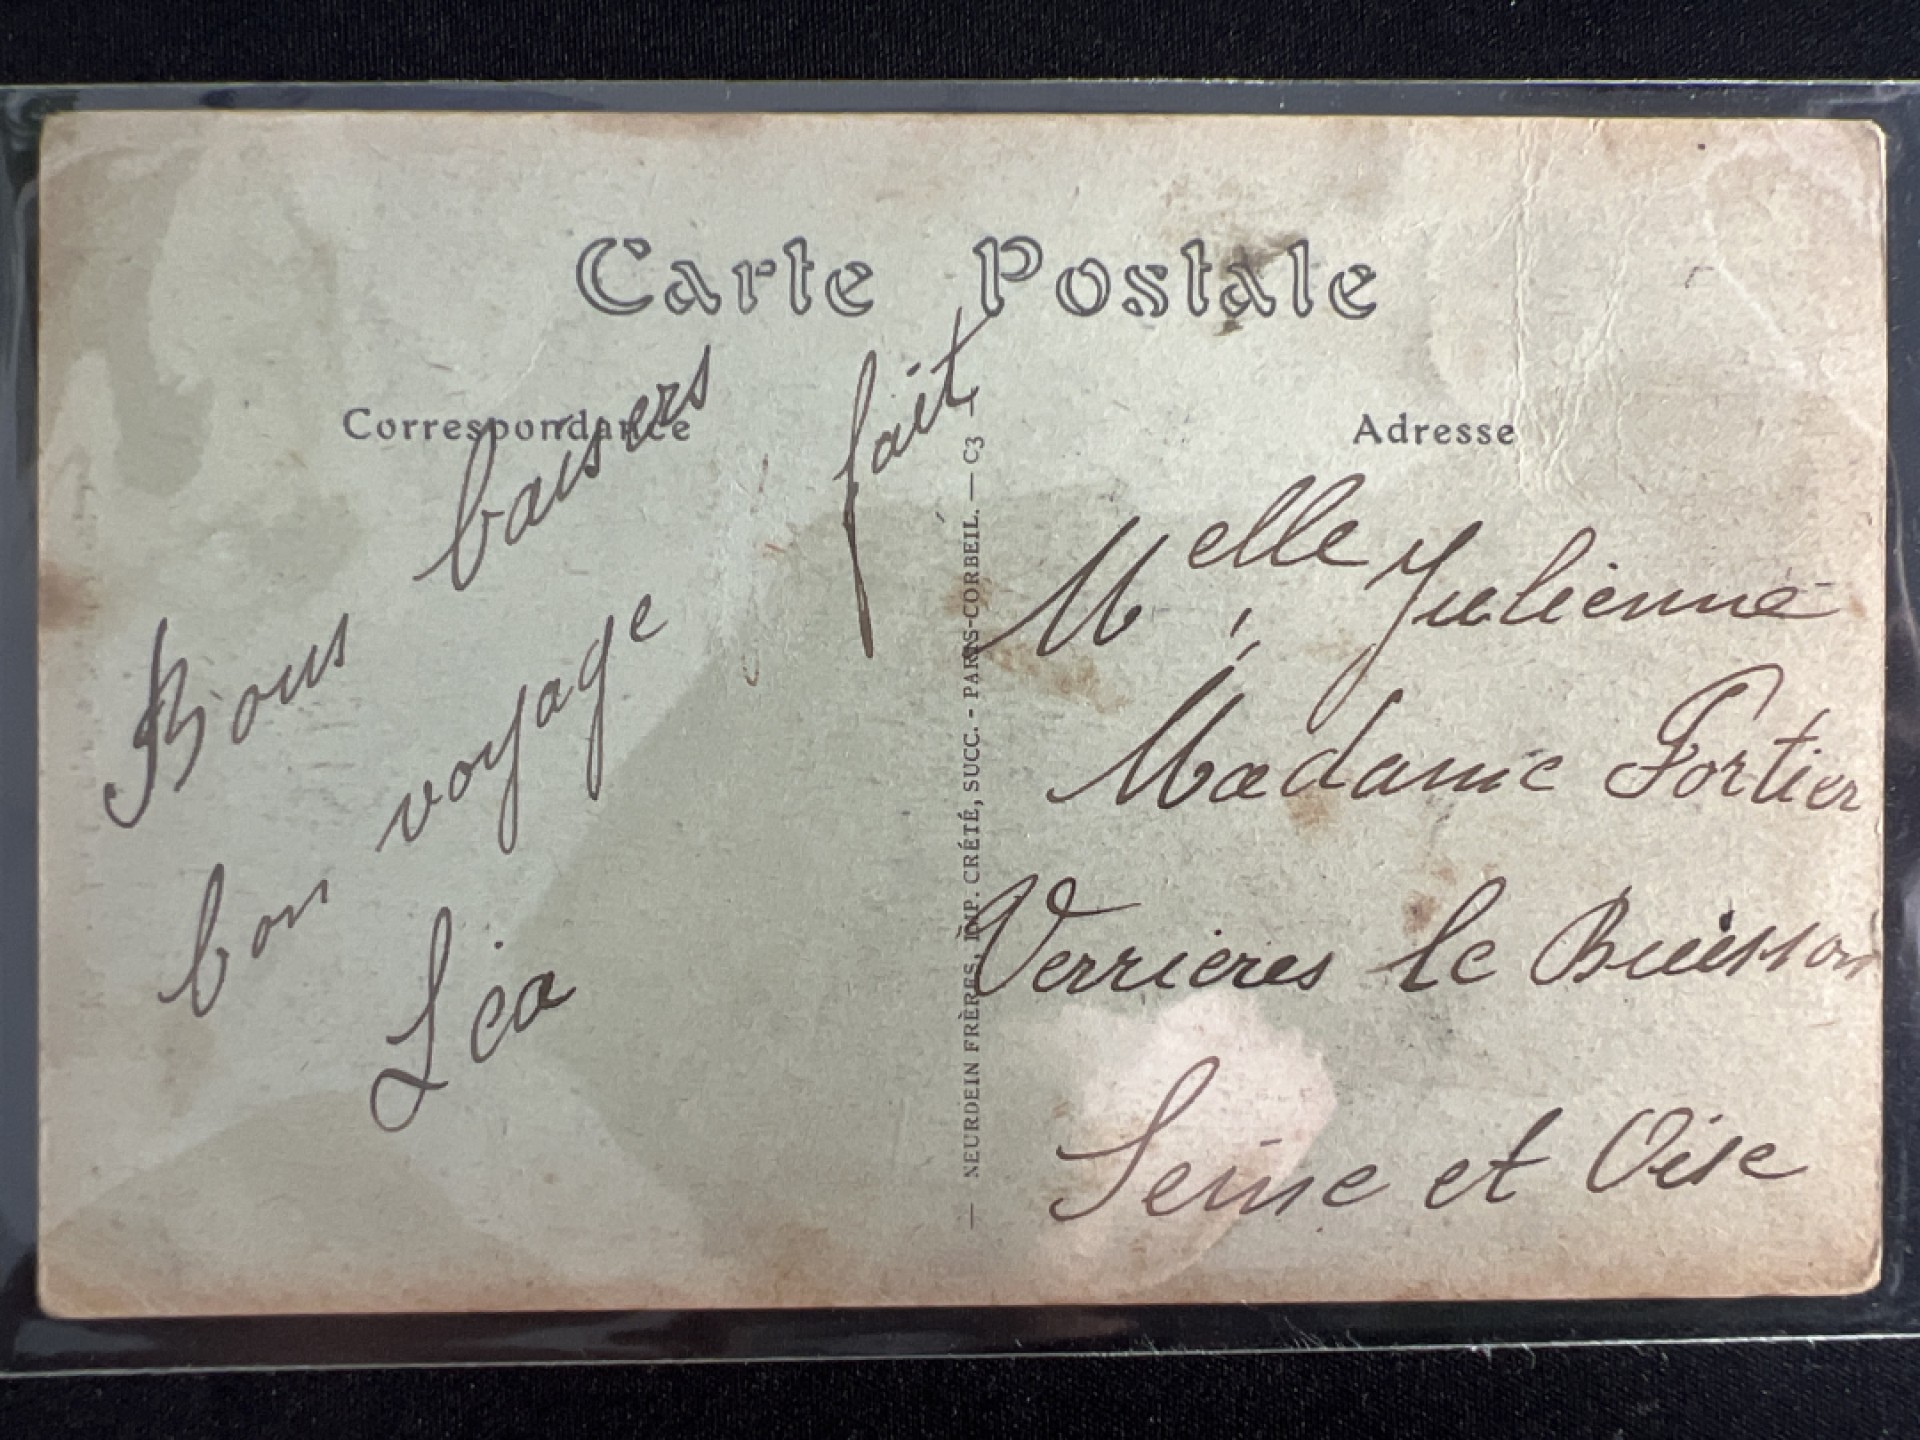 Carte Postale
Correspondance
Bons baisers fait
bon voyage
Léa
— NEURDEIN FRÈRES, IMP. CRÉTÉ, SUCC. - PARIS-CORBEIL. — C3 —
Adresse
Melle Julienne
Madame Fortier
Verrieres le Buisson
Seine et Oise